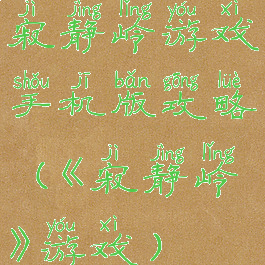 jì jìng lǐng yóu xì
寂静岭游戏
shǒu jī bǎn gōng lüè
手机版攻略
jì jìng lǐng
(《寂静岭
yóu xì
》游戏)